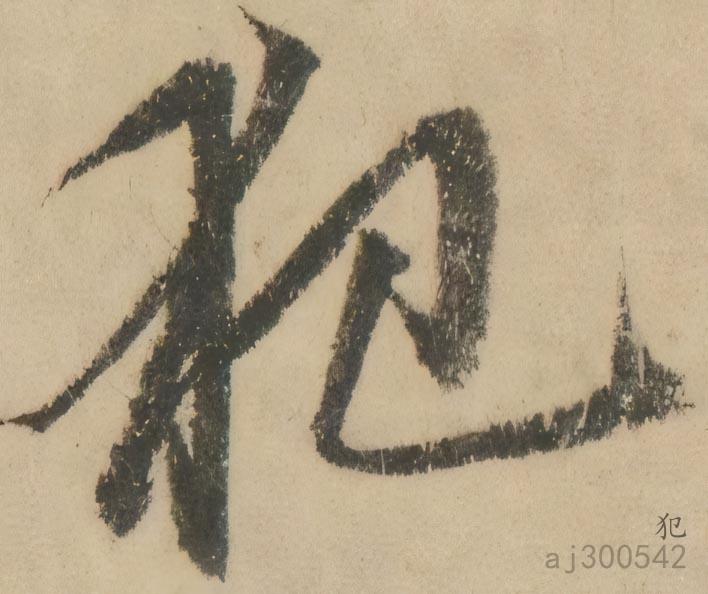 犯
犯
aj300542